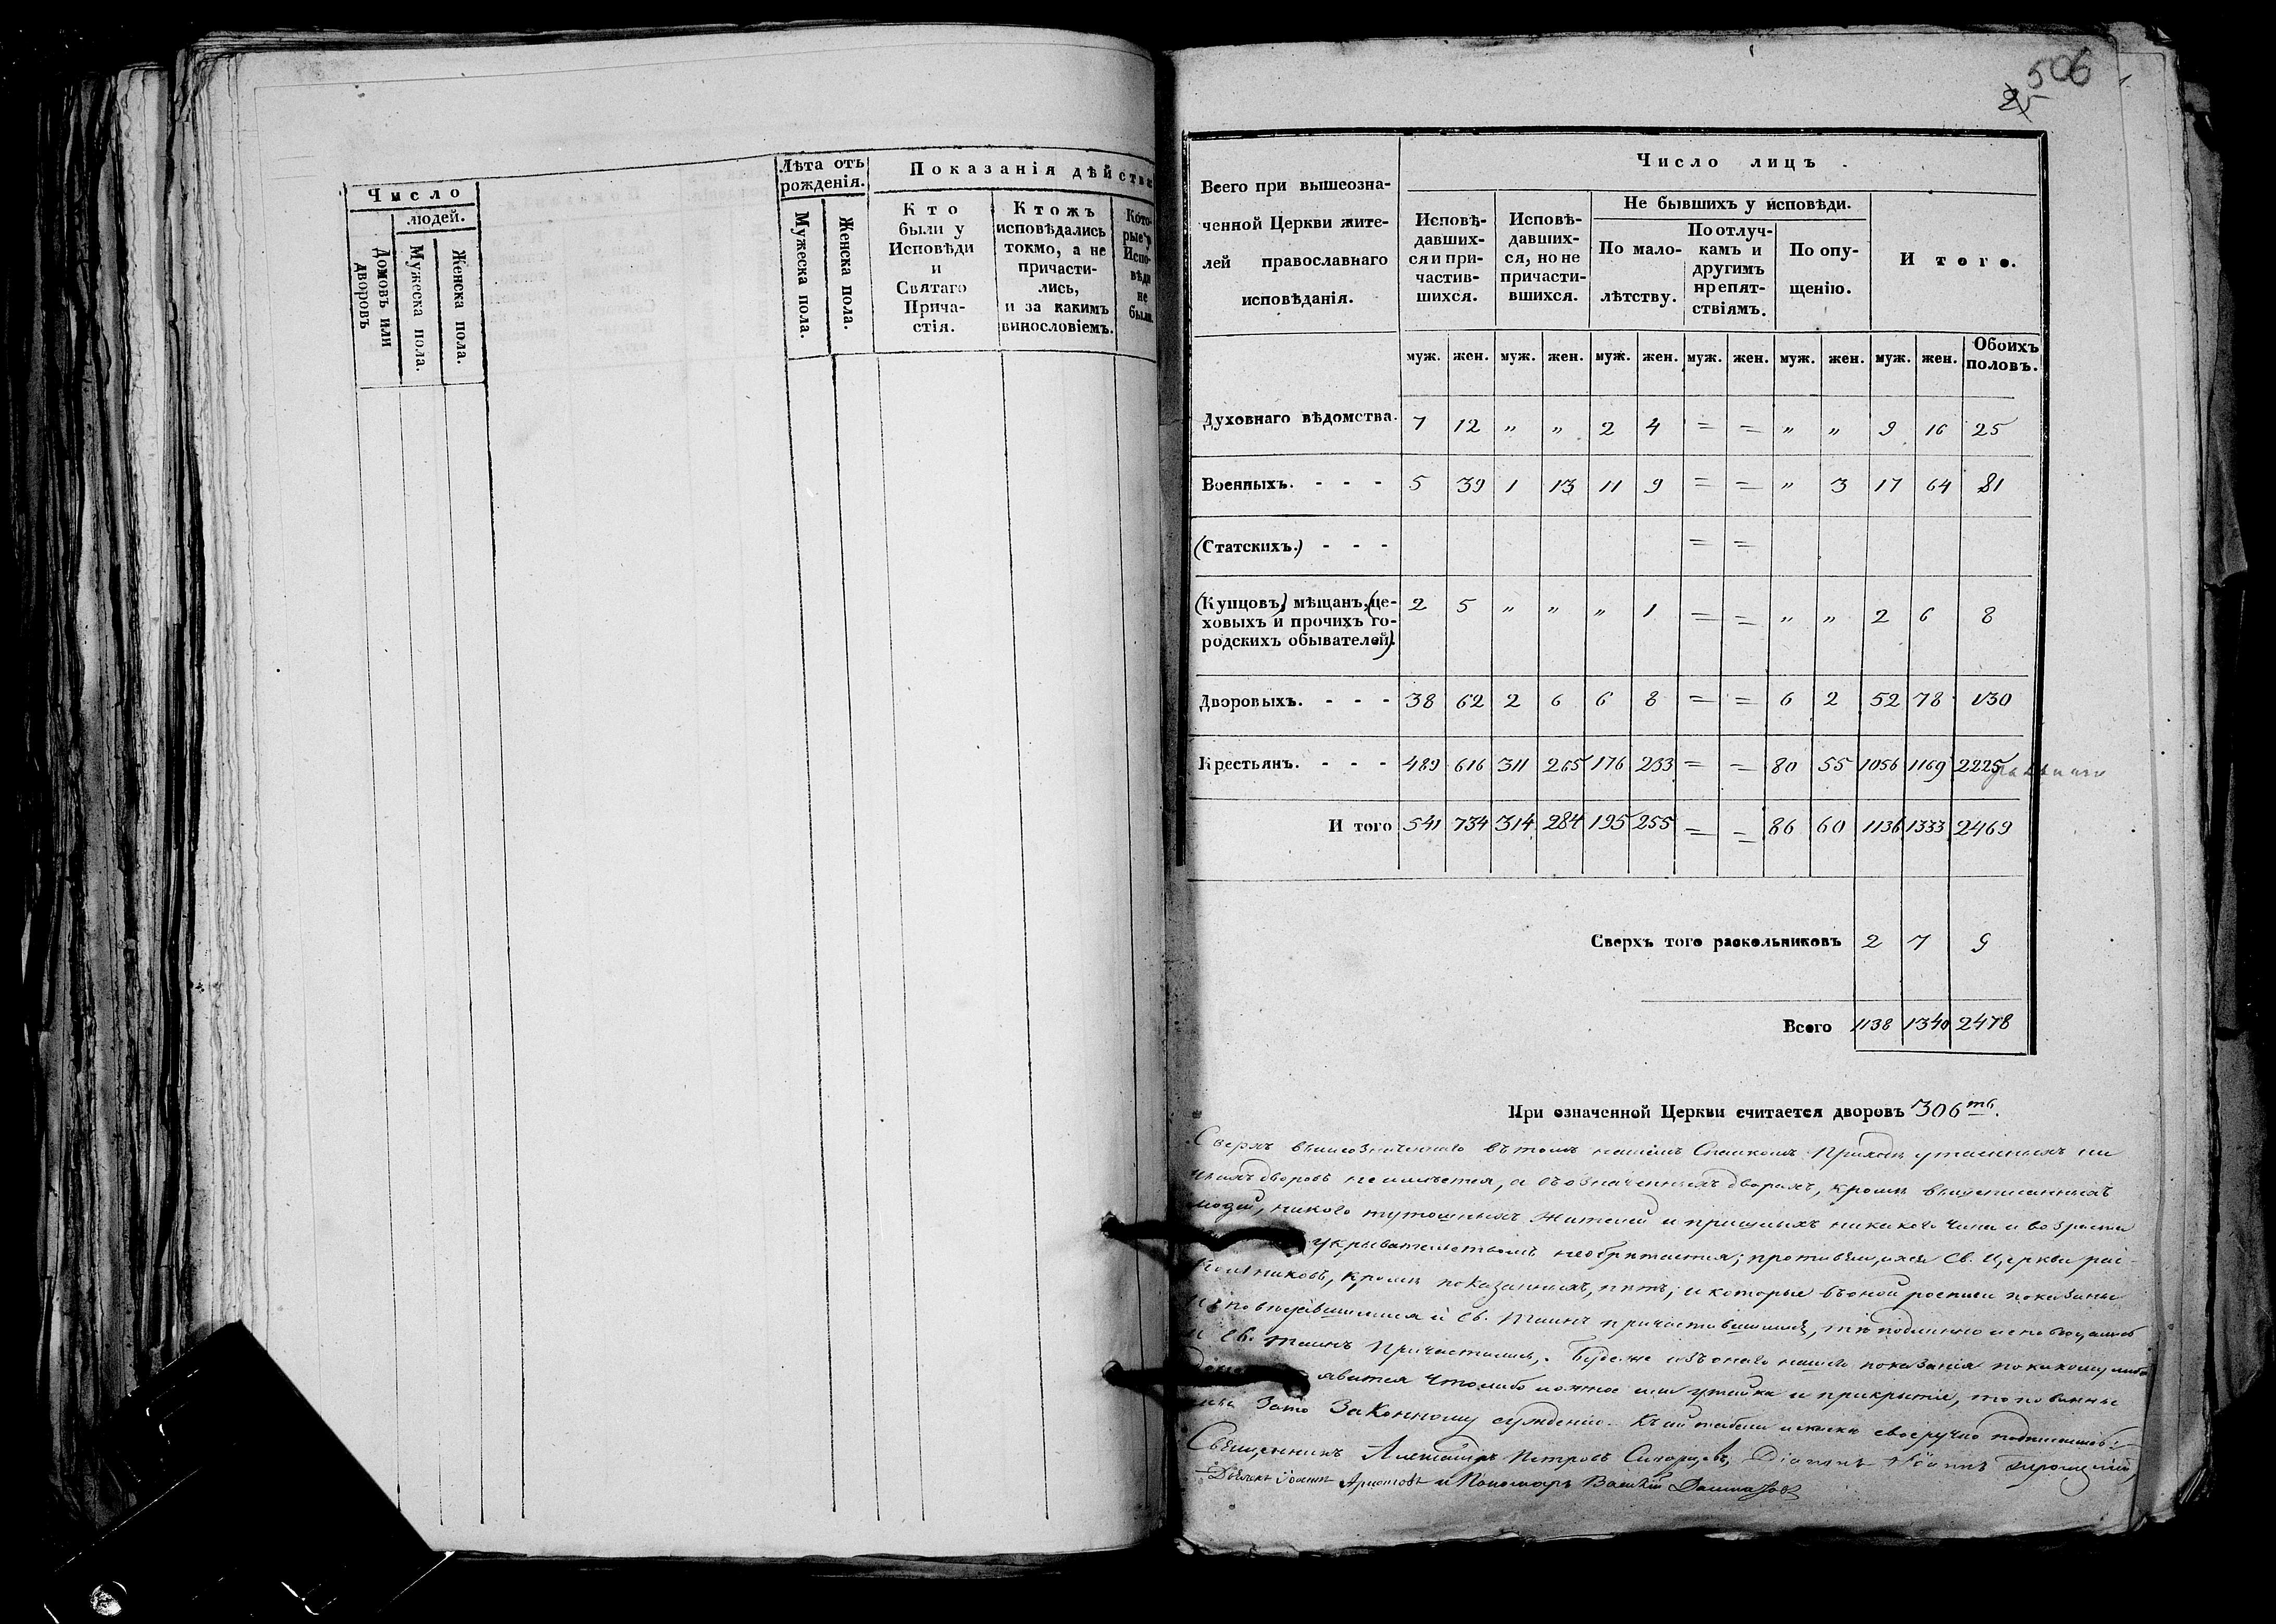 Число
людей.
Домовъ или дворовъ
Мужеска пола.
Женска пола.
Лѣта отъ
рожденія.
Мужеска пола.
Женска пола.
Показанія дѣйства
Кто
были у
Исповѣди
и
Святаго
Прича-
стія.
Ктожъ
исповѣдались
токмо, а не
причасти-
лись,
и за какимъ
винословіемъ.
Кото-
рые у
Испо-
вѣди
не
были.
506
25
Всего при вышеозна-
ченной Церкви жите-
лей православнаго
исповѣданія.
Число лицъ
Исповѣ-
давших-
ся и при-
частив-
шихся.
Исповѣ-
давших-
ся, но не
причасти-
вшихся.
Не бывшихъ у исповѣди.
По мало-
лѣтству.
По отлуч-
камъ и
другимъ
препят-
ствіямъ.
По опу-
щенію.
Итого.
муж. жен. муж. жен. муж. жен. муж. жен. муж. жен. муж. жен. Обоихъ половъ.
Духовнаго вѣдомства. 7 12 " " 2 4 = = " " 9 16 25
Военныхъ. - - - 5 39 1 13 11 9 = = " 3 17 64 81
(Статскихъ.) - - - = =
(Купцовъ,) мѣщанъ, (це-
ховыхъ и прочихъ го-
родскихъ обывателей). 2 5 " " " 1 = = " " 2 6 8
Дворовыхъ. - - - 38 62 2 6 6 8 = = 6 2 52 78 130
Крестьянъ. - - - 489 616 311 265 176 233 = = 80 55 1056 1169 2225
И того 541 734 314 284 195 255 = = 86 60 1136 1333 2469
Сверхъ того раскольниковъ 2 7 9
Всего 1138 1340 2478
При означенной Церкви считается дворовъ 306ть.
Сверхъ вышеозначеннаго въ томъ нашемъ Спаскомъ Приходѣ утаенныхъ ни
чьихъ дворовъ не имѣется, а въ означенныхъ дворахъ, кромѣ вышеписанныхъ
людей, никого тутошнихъ жителей и пришлыхъ никакого чина и возраста
укрывательствомъ необрѣтается; противящихся Св. Церкви рас-
кольниковъ, кромѣ показанныхъ, нѣтъ; и которые въ оной росписи показаны
исповѣдавшимися и Св. Таинъ причастившимися, тѣ подлинно исповѣдались
и Св. Таинъ Причастились. Будеже изъ онаго нашего показанія по какому либо
явится что либо ложное или утайка и прикрытіе, то повинны
за то Законному сужденію. Къ сей своеручно подписались:
Священникъ Александръ Петровъ Діаконъ Іоаннъ
Дьячекъ Іоаннъ Аристовъ и Пономарь Василій